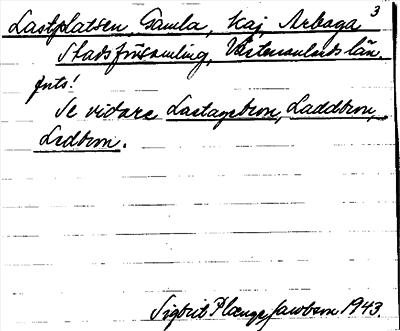 3
Lastplatsen, Gamla, kaj Arboga
Stadsförsamling, Västmanlands län.
forts!
Se vidare Lastagebron, Laddbron,
Ledbron.
Sigbrit Plænge Jacobson 1943.